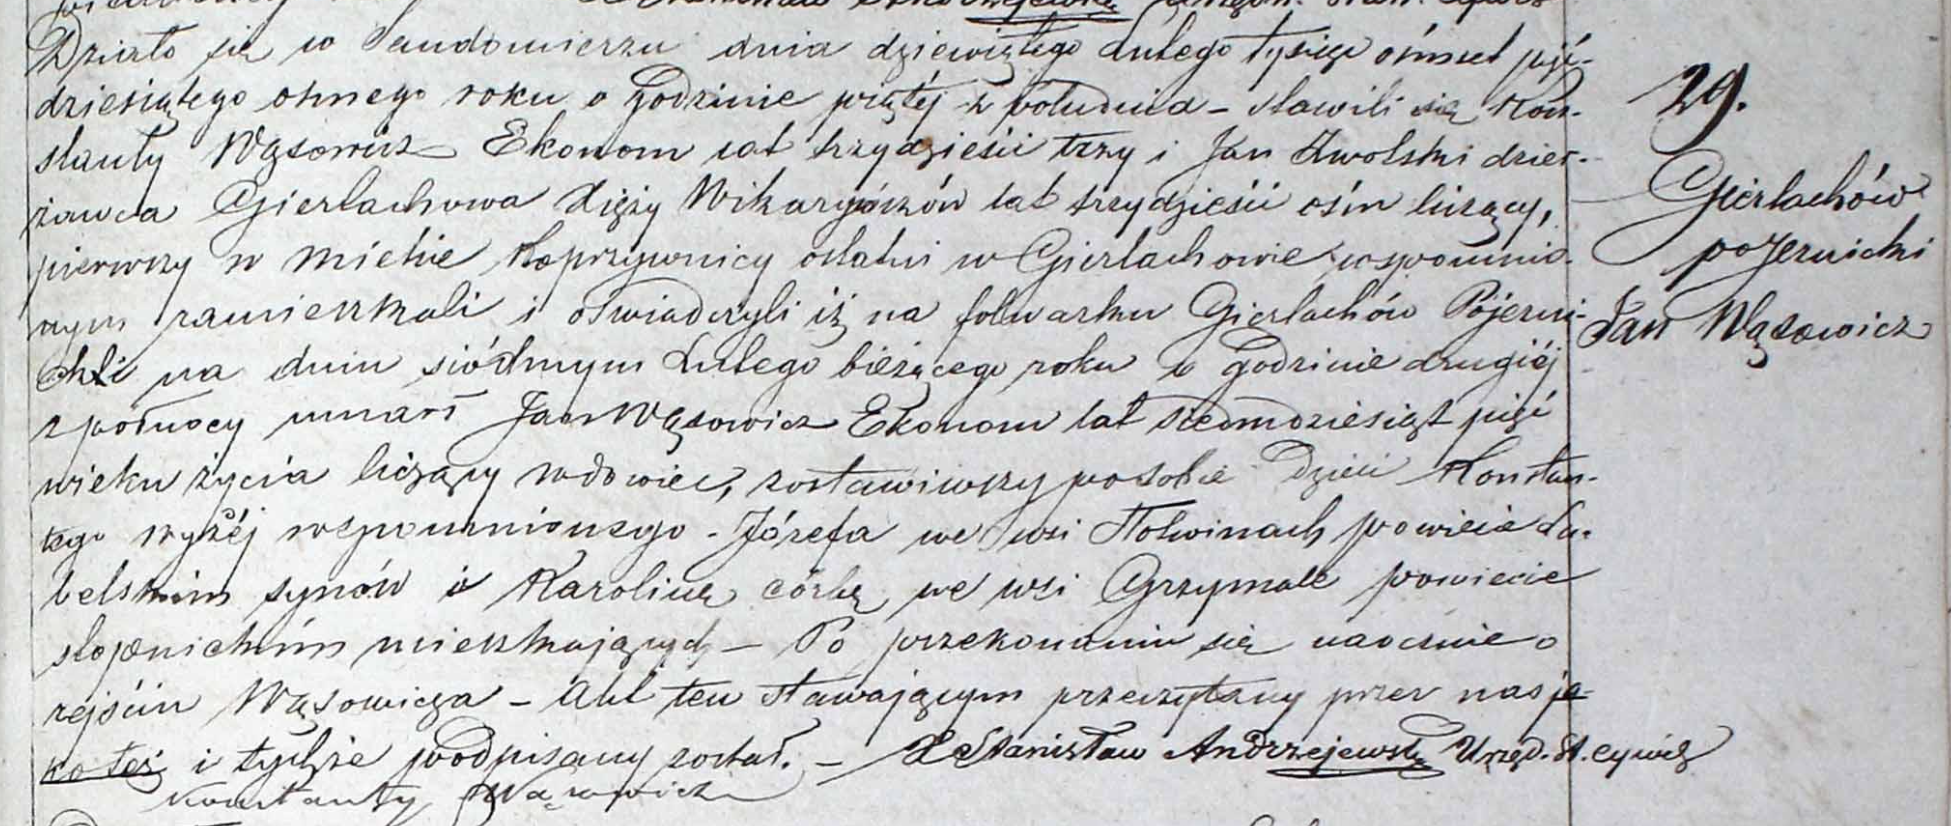 Działo się w Sandomierzu dnia dziewiątego Lutego tysiąc ośmset pięć-
dziesiątego osmego roku o godzinie piątéj z południa – stawili się Kon-
stanty Wąsowicz Ekonom lat trzydzieści trzy i Jan Zwolski dzier-
żawca Gierlachowa Xięży Wikaryuszów lat trzydzieści ośm liczący,
pierwszy w mieście Koprzywnicy ostatni w Gierlachowie wspomnio-
nym zamieszkali i oświadczyli iż na folwarku Gierlachów Pojezui-
cki na dniu siódmym Lutego bieżącego roku o godzinie drugiéj
z północy umarł Jan Wąsowicz Ekonom lat siedmdziesiąt pięć
wieku życia liczący wdowiec, zostawiwszy po sobie Dzieci Konstan-
tego wyżéj wspomnionego – Józefa we wsi powiecie Lu-
belskim synów i Karolinę córkę we wsi Grzymale powiecie
stopnickim mieszkających – Po przekonaniu się naocznie o
zejściu Wąsowicza – Akt ten stawającym przeczytany przez nas ja-
ko też i tychże podpisany został. – X Stanisław Andrzejewski Urzęd. St. cywil
Konstanty Wąsowicz
29.
Gierlachów
pojezuicki
Jan Wąsowicz